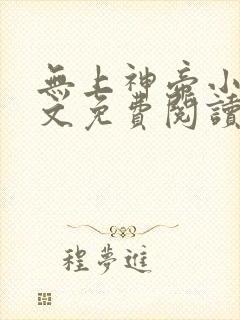 無上神帝小
文免費閱讀
程夢進